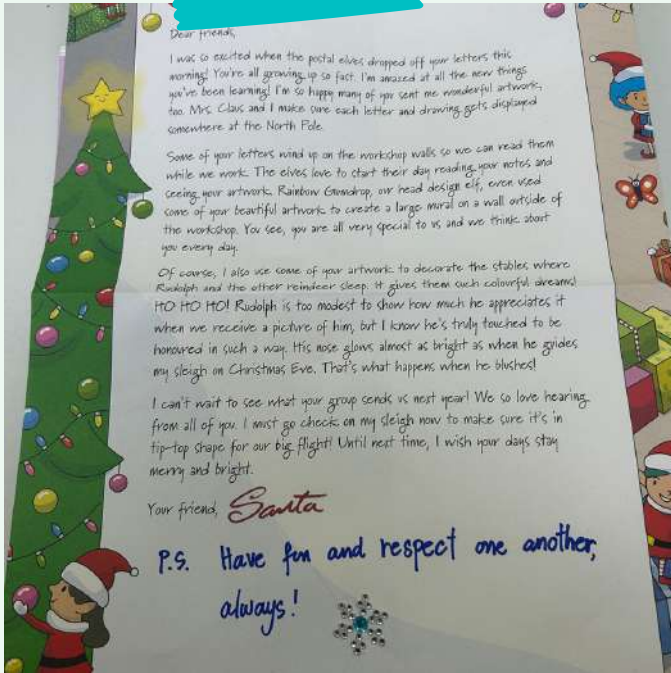 Dear friends,
I was so excited when the postal elves dropped off your letters this
morning! You're all growing up so fast. I'm amazed at all the new things
you've been learning! I'm so happy many of you sent me wonderful artwork,
too. Mrs. Claus and I make sure each letter and drawing gets displayed
somewhere at the North Pole.
Some of your letters wind up on the workshop walls so we can read them
while we work. The elves love to start their day reading your notes and
seeing your artwork. Rainbow Gumdrop, our head design elf, even used
some of your beautiful artwork to create a large mural on a wall outside of
the workshop. You see, you are all very special to us and we think about
you every day.
Of course, I also use some of your artwork to decorate the stables where
Rudolph and the other reindeer sleep. It gives them such colourful dreams!
HO HO HO! Rudolph is too modest to show how much he appreciates it
when we receive a picture of him, but I know he's truly touched to be
honoured in such a way. His nose glows almost as bright as when he guides
my sleigh on Christmas Eve. That's what happens when he blushes!
I can't wait to see what your group sends us next year! We so love hearing
from all of you. I must go check on my sleigh now to make sure it's in
tip-top shape for our big flight! Until next time, I wish your days stay
merry and bright.
Your friend, Santa
P.S. Have fun and respect one another,
always!